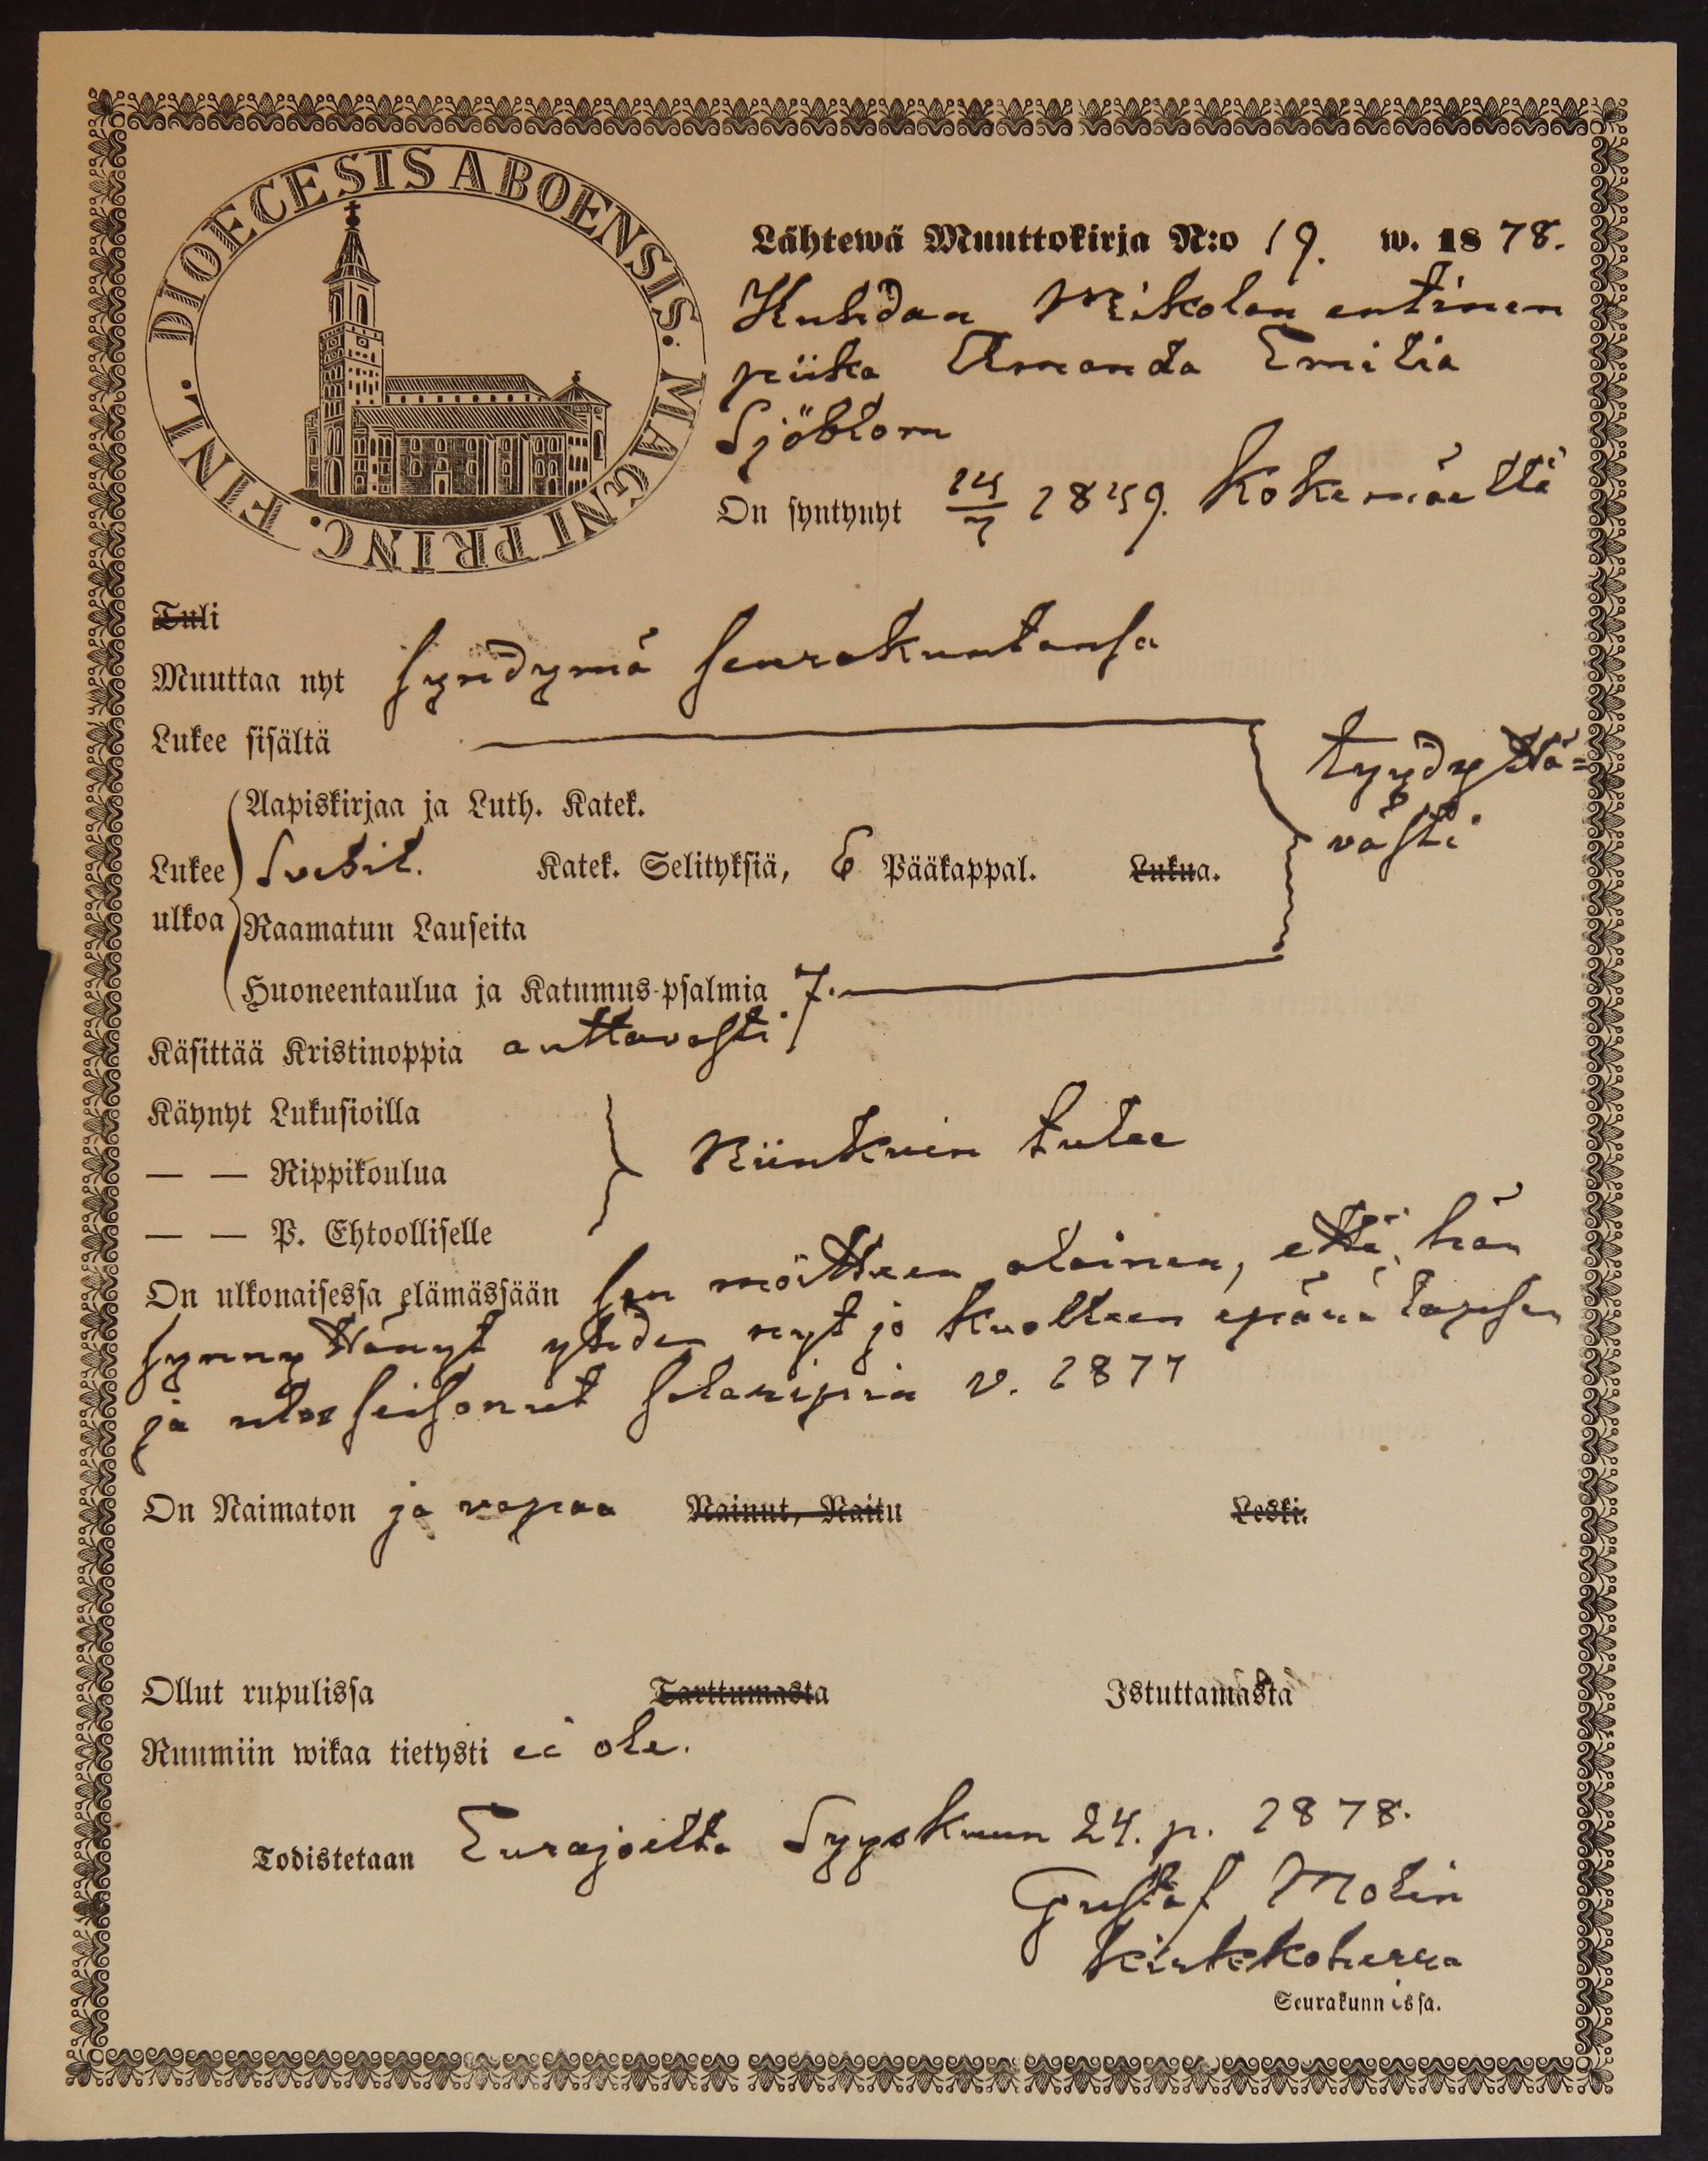 DIOECESIS ABOENSIS. MAGNI PRINC. FINL.
Lähtewä Muuttokirja N:o 19. w. 1878.
Mikolan entinen
piika Amanda Emilia
Sjöblom
On syntynyt 24/7 1849. Kokemäellä
Tuli
Muuttaa nyt syndymä seurakuntansa
Lukee sisältä
tyydyttä=
västi
Aapiskirjaa ja Luth. Katek.
Lukee Svebil. Katek. Selityksiä, 6 Pääkappal. Lukua.
ulkoa Raamatun Lauseita
Huoneentaulua ja Katumus-psalmia 7.
Käsittää Kristinoppia auttavasti
Käynyt Lukusioilla
— — Rippikoulua Niinkuin tulee
— — P. Ehtoolliselle
On ulkonaisessa elämässään sen möitteen alainen, että hän
synnyttänyt yhden nyt jo kuolleen äpärä lapsen
ja ulosseisonut salaripin v. 1877
On Naimaton ja vapaa Nainut, Naitu Leski.
Ollut rupulissa Tarttumasta Istuttamasta
Ruumiin wikaa tietysti ei ole.
Todistetaan Eurajoella Syyskuun 24. p. 1878.
Gustaf Molin
Kirkkoherra
Seurakunnissa.